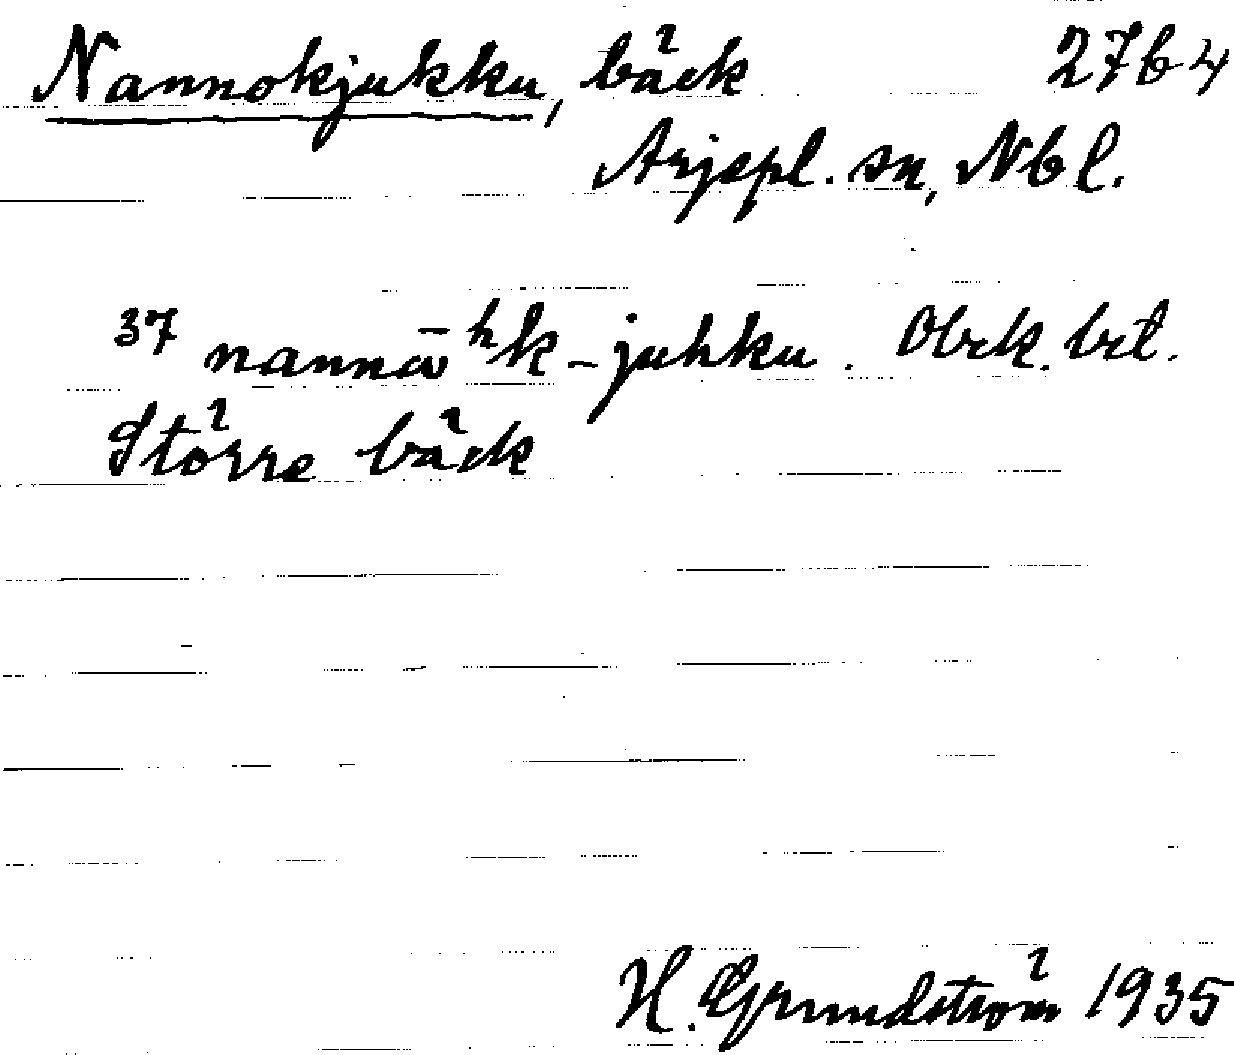 Nannokjukku, bäck 27b4
Arjepl. sn, Nbl.
37 nannā hk-juhku. Obek. brt.
Större bäck
H. Grundström 1935